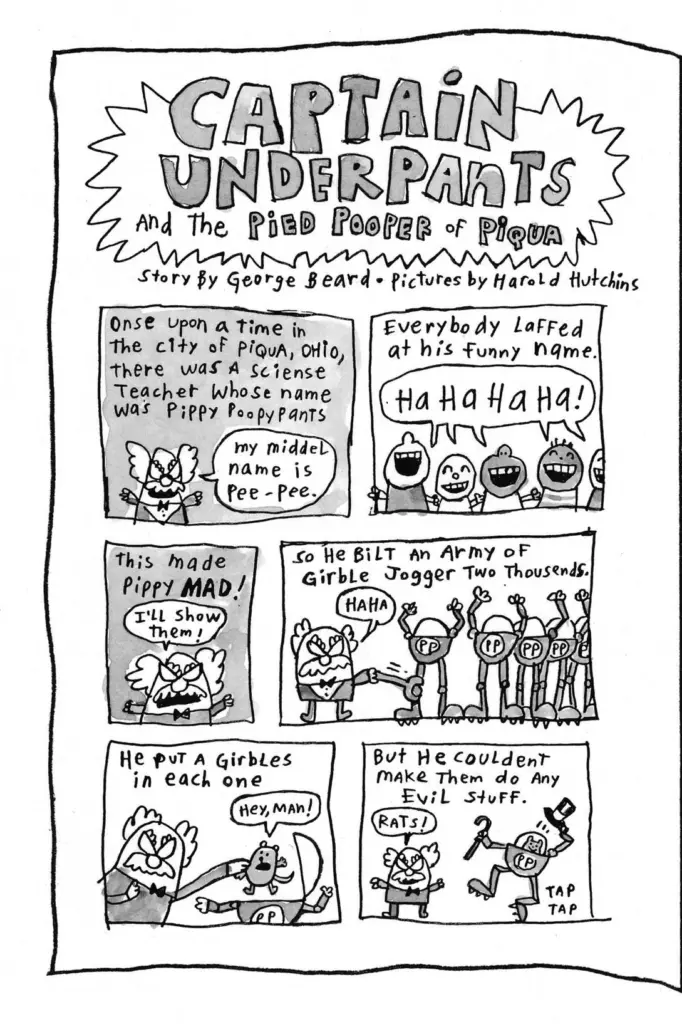 CAPTAIN
UNDERPANTS
And The PIED POOPER of PIQUA
Story By George Beard • Pictures by Harold Hutchins
Onse upon a time in
The city of PIQUA, OHIO,
there was A Sciense
Teacher whose name
was Pippy Poopypants
my middel
name is
Pee-Pee.
Everybody Laffed
at his funny name.
Ha Ha Ha Ha!
This made
Pippy MAD!
I'LL Show
them!
So He Bilt An Army of
Girble Jogger Two Thousends.
HAHA
PP
PP
PP
PP
P
He put A Girbles
in each one
Hey, MAN!
PP
But He Couldent
Make Them do Any
Evil Stuff.
RATS!
PP
TAP
TAP